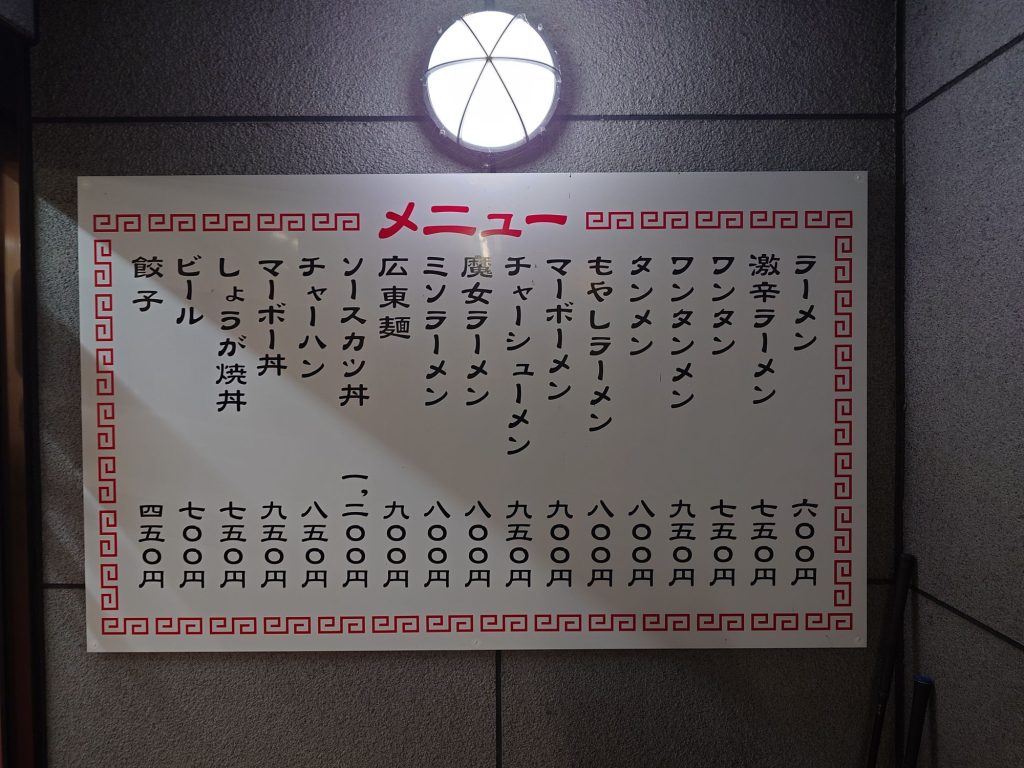 メニュー
ラーメン 六〇〇円
激辛ラーメン 七五〇円
ワンタン 七五〇円
ワンタンメン 九五〇円
タンメン 八〇〇円
もやしラーメン 八〇〇円
マーボーメン 九〇〇円
チャーシューメン 九五〇円
魔女ラーメン 八〇〇円
ミソラーメン 八〇〇円
広東麺 九〇〇円
ソースカツ丼 一,二〇〇円
チャーハン 八五〇円
マーボー丼 九五〇円
しょうが焼丼 七五〇円
ビール 七〇〇円
餃子 四五〇円